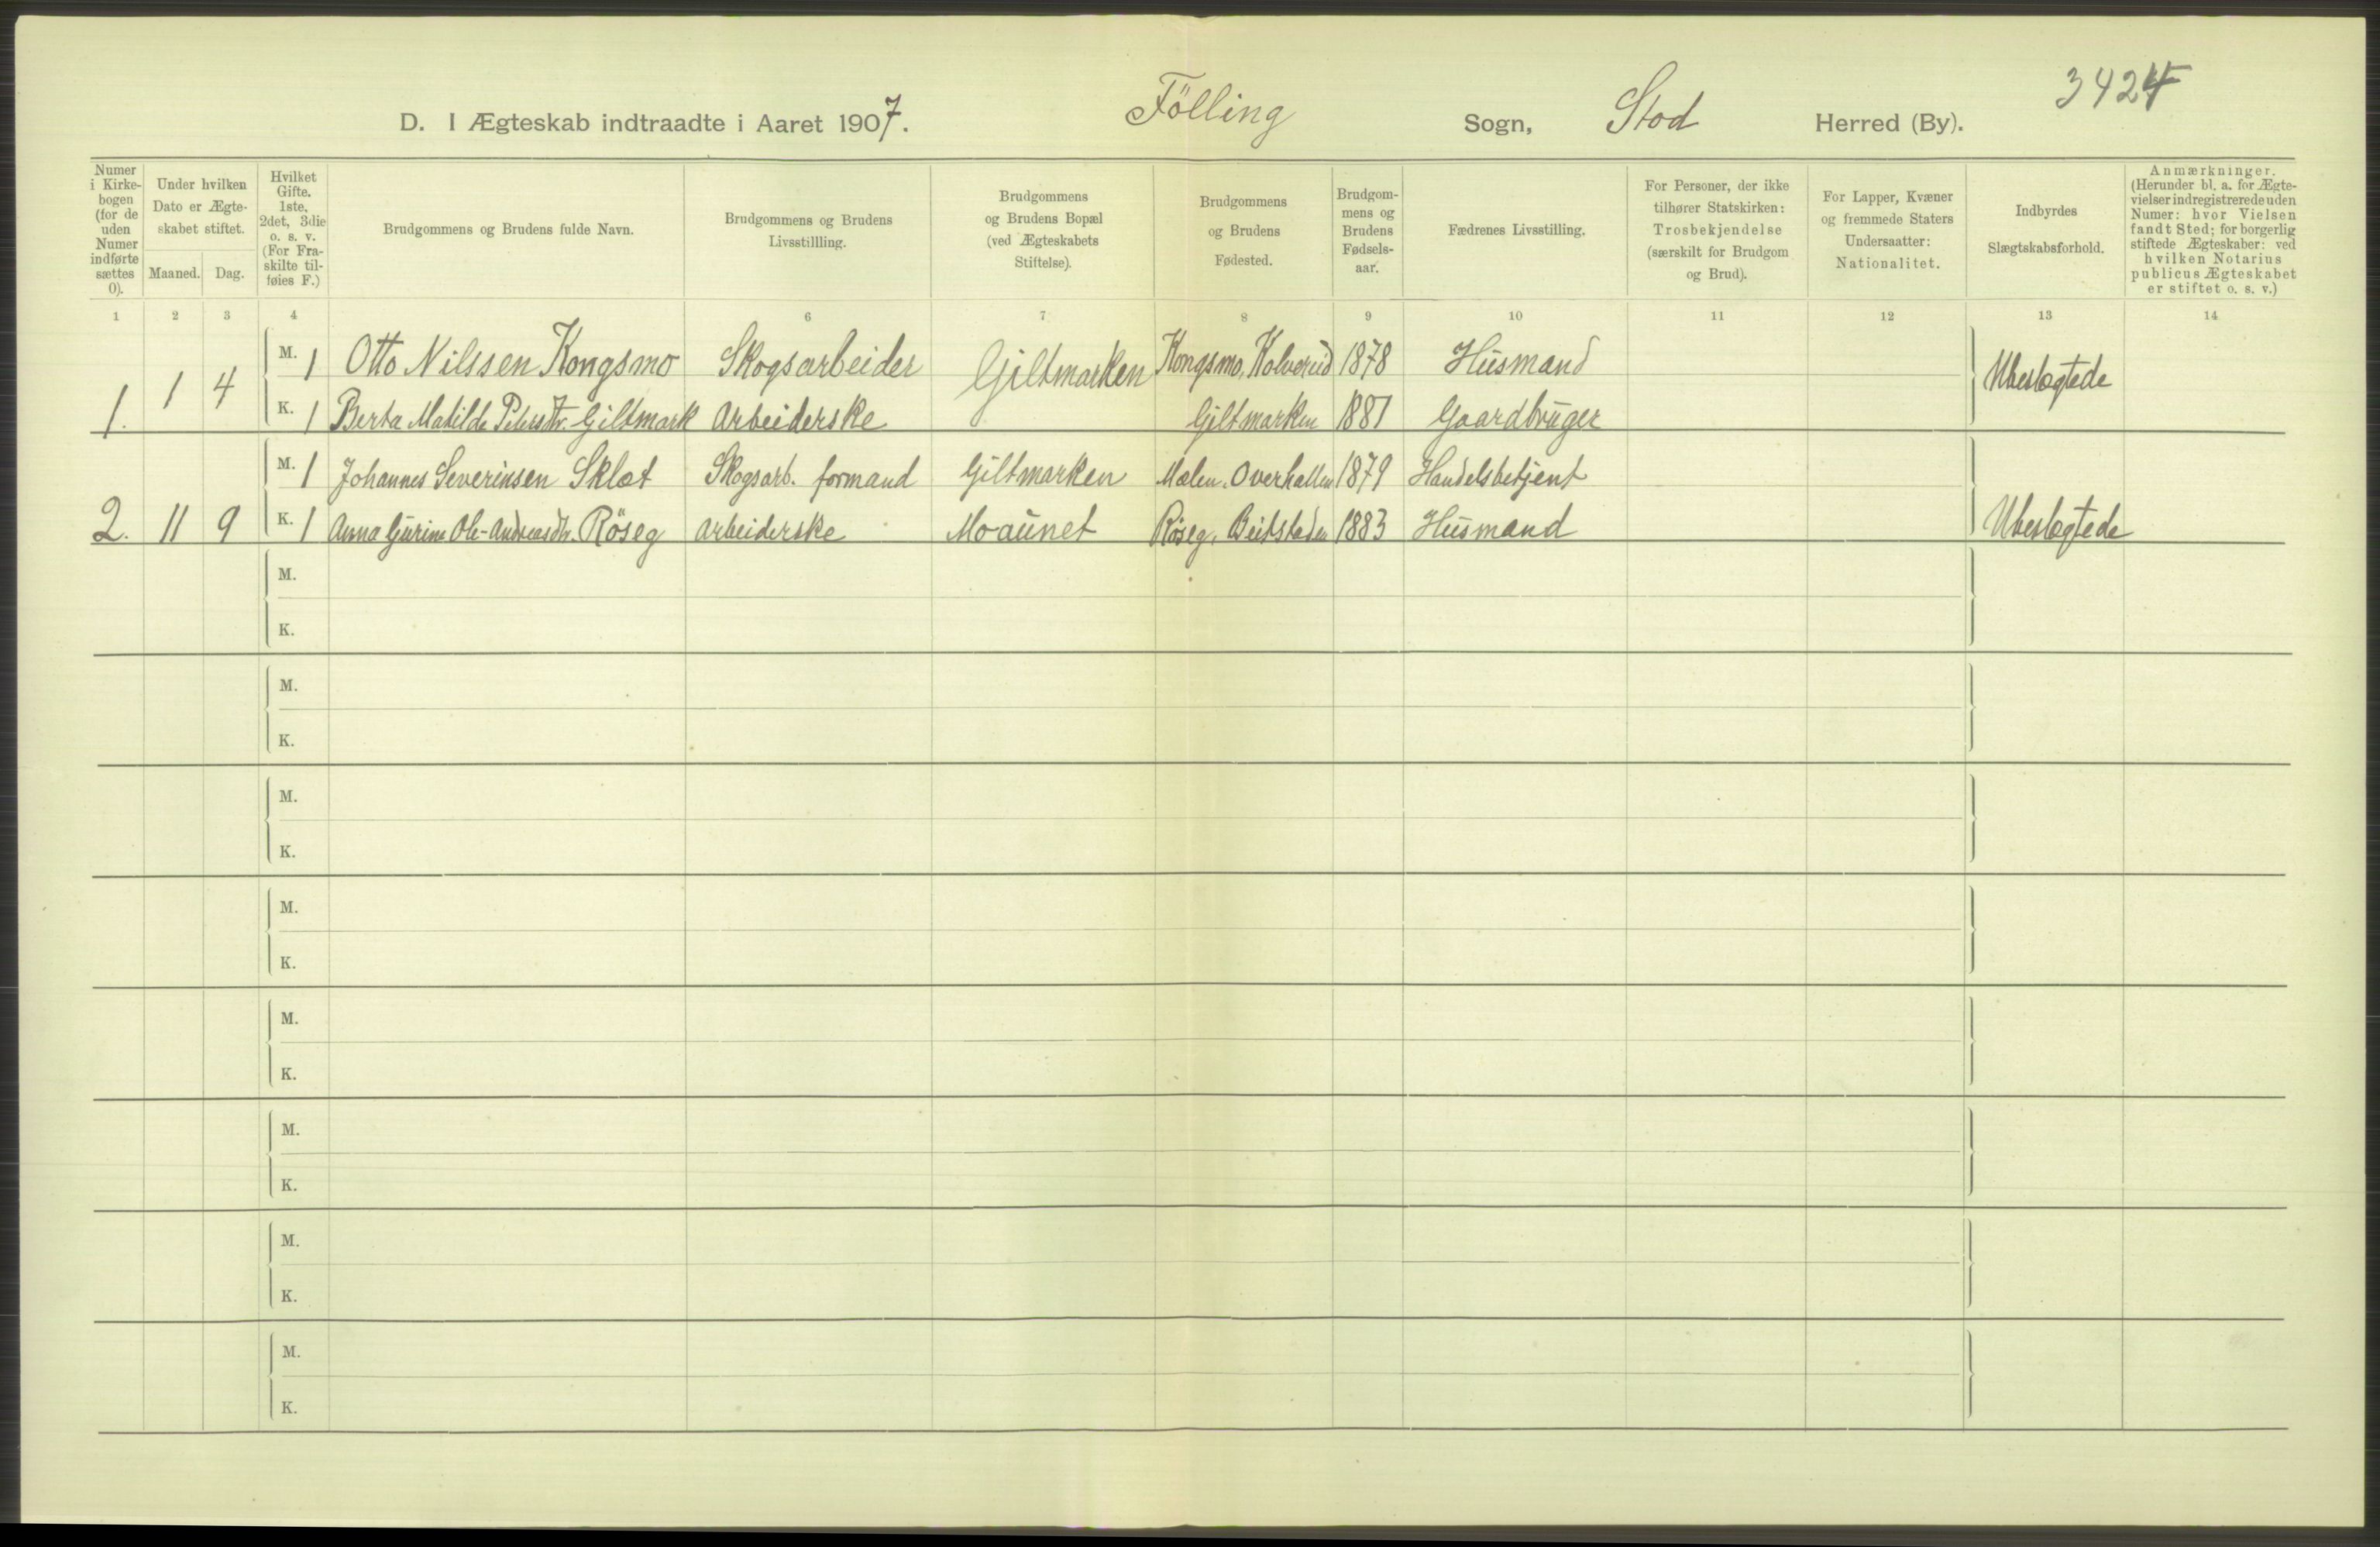 3424
D. I Ægteskab indtraadte i Aaret 1907. Fölling Sogn, Stod Herred (By).
Numer i Kirkebogen (for de uden Numer indførte sættes 0).
Under hvilken Dato er Ægteskabet stiftet.
Maaned. Dag.
Hvilket Gifte. 1ste, 2det, 3die o. s. v. (For Fraskilte tilføies F.)
Brudgommens og Brudens fulde Navn.
Brudgommens og Brudens Livsstillling.
Brudgommens og Brudens Bopæl (ved Ægteskabets Stiftelse).
Brudgommens og Brudens Fødested.
Brudgommens og Brudens Fødselsaar.
Fædrenes Livsstilling.
For Personer, der ikke tilhører Statskirken: Trosbekjendelse (særskilt for Brudgom og Brud).
For Lapper, Kvæner og fremmede Staters Undersaatter: Nationalitet.
Indbyrdes Slægtskabsforhold.
Anmærkninger. (Herunder bl. a. for Ægtevielser indregistrerede uden Numer: hvor Vielsen fandt Sted; for borgerlig stiftede Ægteskaber: ved hvilken Notarius publicus Ægteskabet er stiftet o. s. v.)
1 2 3 4 6 7 8 9 10 11 12 13 14
M. 1 Otto Nilssen Kongsmo Skogsarbeider Giltmarken Kongsmo, Kolvereid 1878 Husmand
1. 1 4 Ubeslegtede
K. 1 Berta Matilde Petersdtr. Giltmark Arbeiderske Giltmarken 1881 Gaardbruger
M. 1 Johannes Severinsen Sklet Skogsarb. formand Giltmarken Mælen. Overhallen 1879 Handelsbetjent
2. 11 9 K. 1 Anna Gurine Ole-Andreasdtr. Röseg Arbeiderske Moaunet Röseg, Beitstaden 1883 Husmand Ubeslegtede
M.
K.
M.
K.
M.
K.
M.
K.
M.
K.
M.
K.
M.
K.
M.
K.